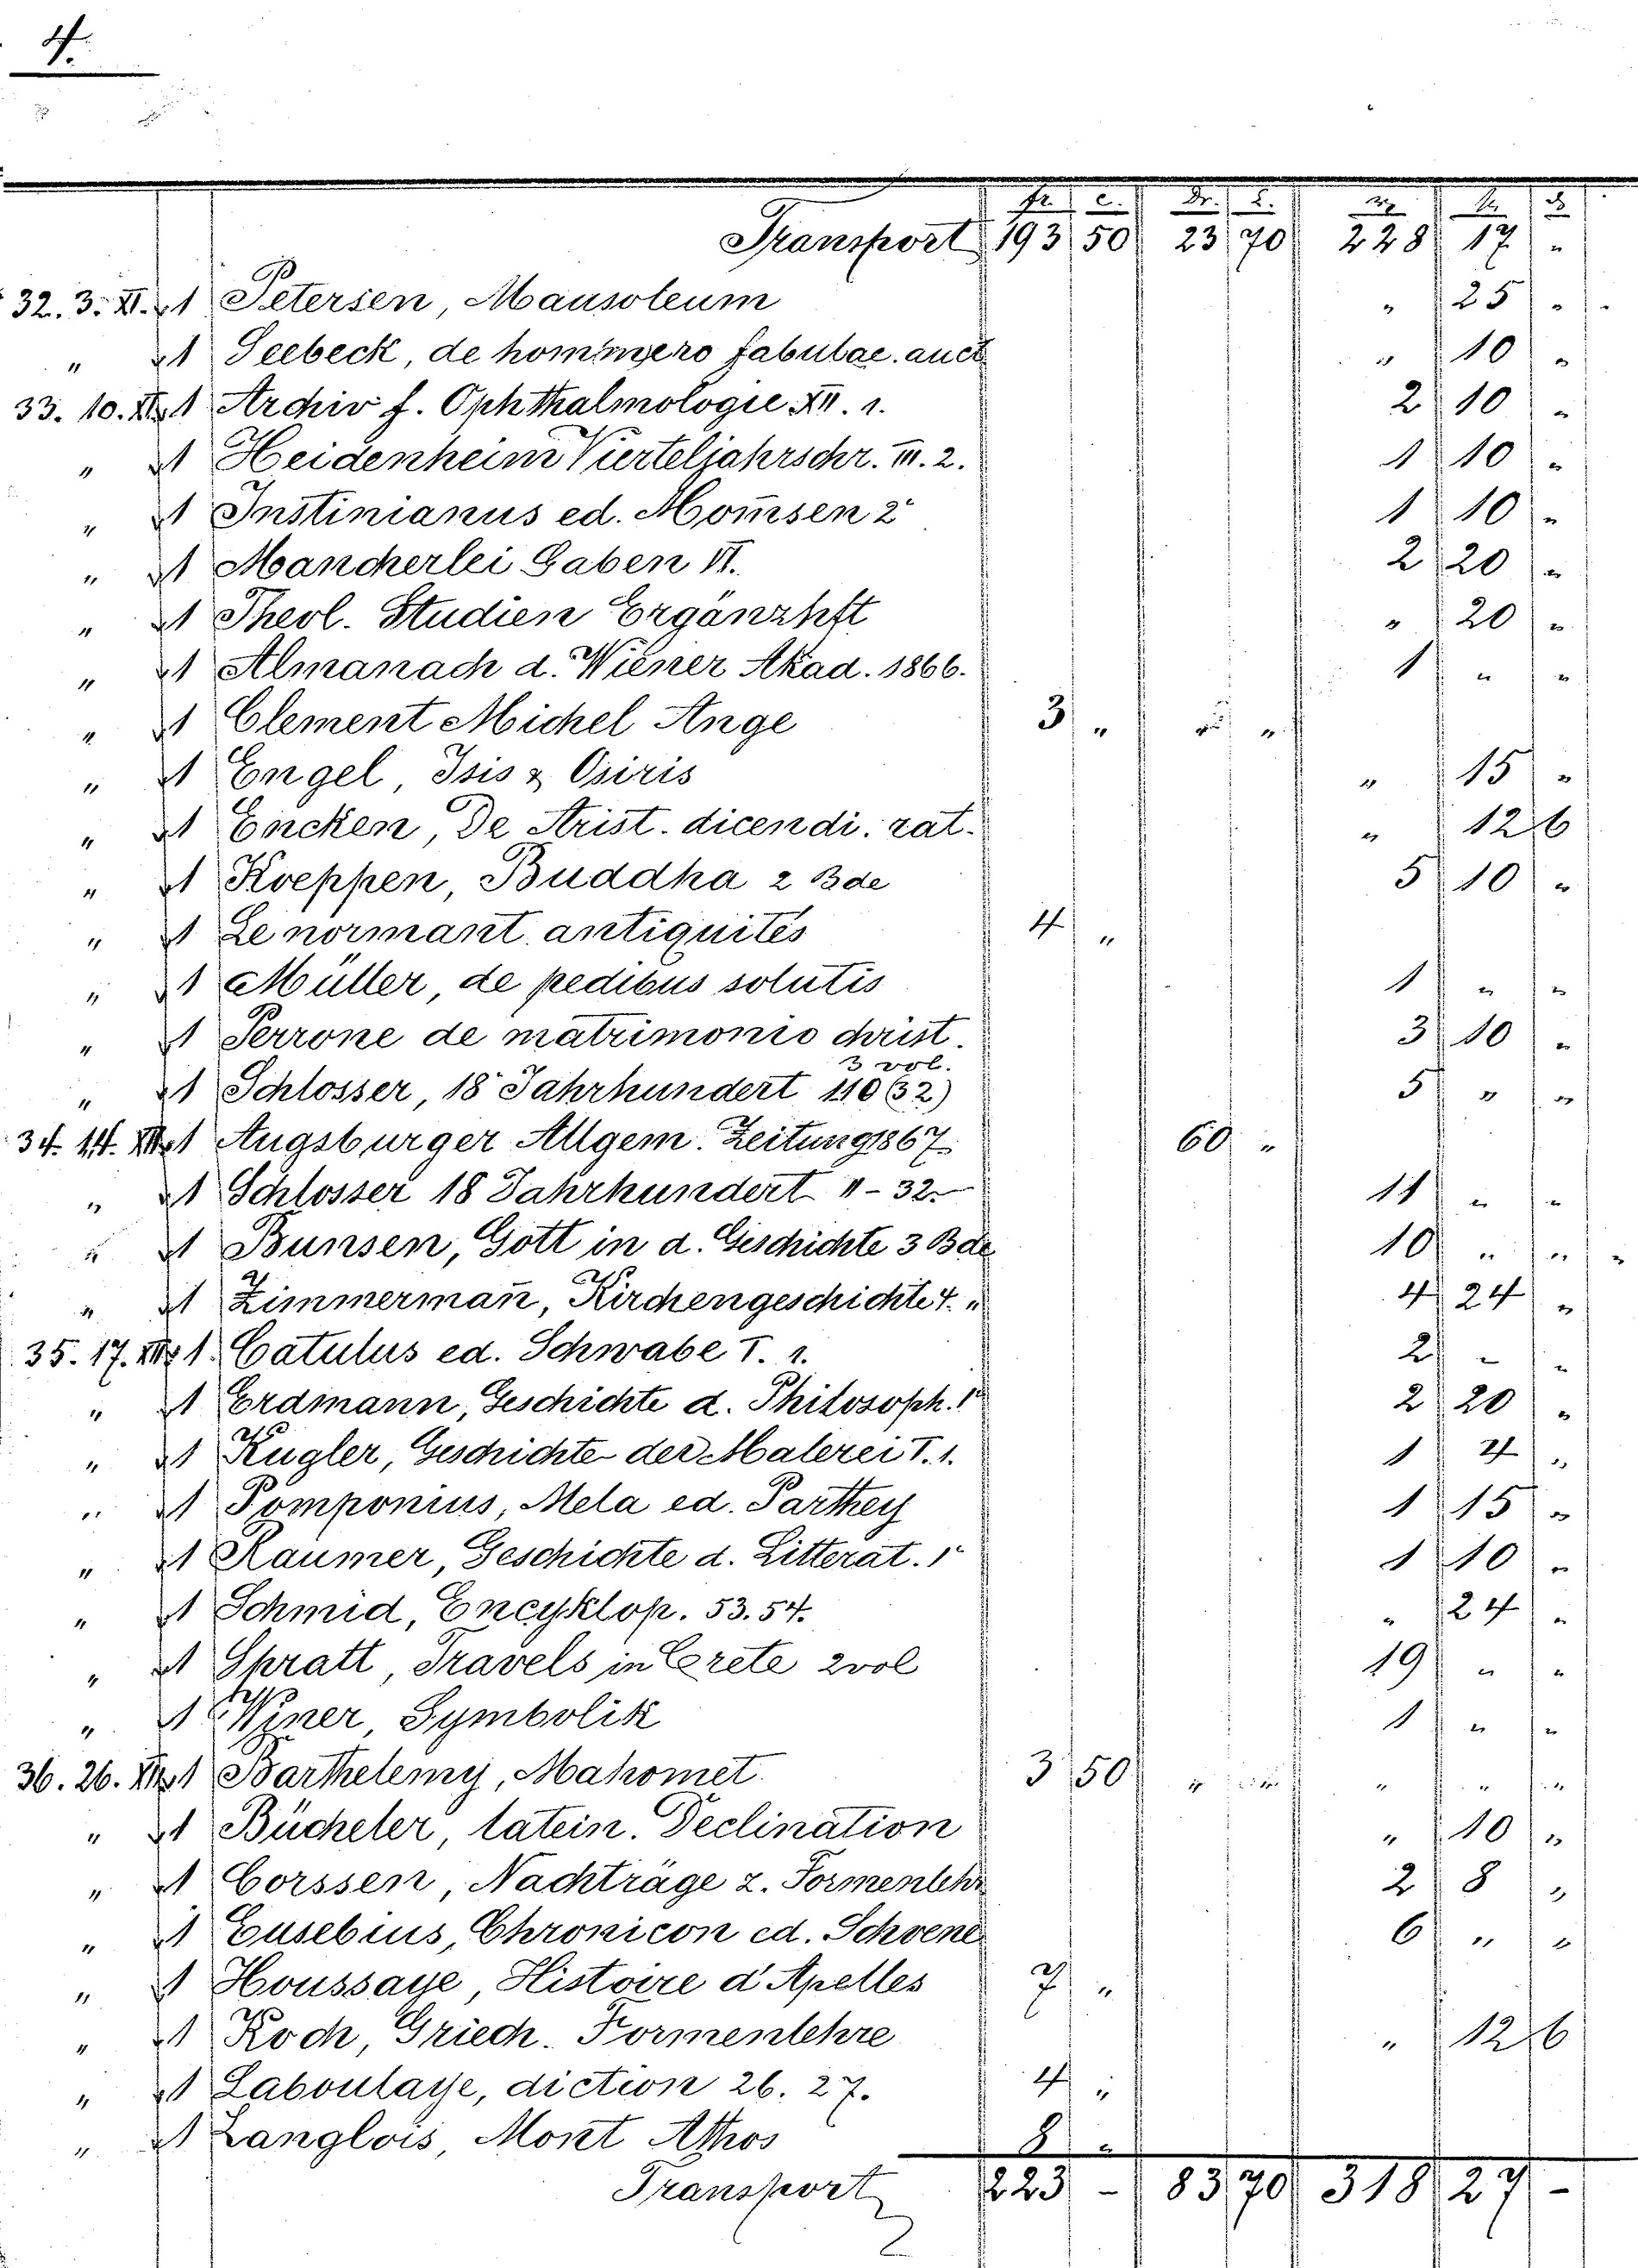 4.
fr. c. Dr. L.
Transport 193 50 23 70 228 17 "
32. 3. XI. 1 Petersen, Mausoleum " 25 "
" 1 Seebeck, de homero fabulae auct " 10 "
33. 10. XII. 1 Archiv f. Ophthalmologie XII. 1. 2 10 "
" 1 Heidenheim Vierteljahrschr. III. 2. 1 10 "
" 1 Instinianus ed. Mom̄sen 2 1 10 "
" 1 Mancherlei Gaben VI. 2 20 "
" 1 Theol. Studien Ergänzhft " 20 "
" 1 Almanach d. Wiener Akad. 1866. 1 " "
" 1 Clement Michel Ange 3 " " "
" 1 Engel, Isis & Osiris " 15 "
" 1 Encken, De Arist. dicendi. rat. " 12 6
" 1 Koeppen, Buddha 2 Bde 5 10 "
" 1 Lenormant. antiquités 4 "
" 1 Müller, de pedibus solutis 1 " "
" 1 Perrone de matrimonio christ. 3 10 "
3 vol.
" 1 Schlosser, 18 Jahrhundert 110 (32) 5 " "
34. 14. XII. 1 Augsburger Allgem. Zeitung 1867. 60 "
" 1 Schlosser 18 Jahrhundert 11-32. 11 " "
" 1 Bunsen, Gott in d. Geschichte 3 Bde 10 " "
" 1 Zimmerman̄, Kirchengeschichte 4. " 4 24 "
35. 17. XII. 1. Catulus ed. Schwabe T. 1. 2 - "
" 1 Erdmann, Geschichte d. Philosoph. 1 2 20 "
" 1 Kugler, Geschichte der Malerei T. 1. 1 4 "
" 1 Pomponius, Mela ed. Parthey 1 15 "
" 1 Raumer, Geschichte d. Litterat. 1 1 10 "
" 1 Schmid, Encyklop. 53. 54. " 24 "
" 1 Spratt, Travels in Crete 2 vol 19 " "
" 1 Winer, Symbolik 1 " "
36. 26. XII. 1 Barthelemy, Mahomet. 3 50 " " " " "
" 1 Bücheler, latein. Declination " 10 "
" 1 Corssen, Nachträge z. Formenlehr 2 8 "
" 1 Eusebius, Chronicon ed. Schoene 6 " "
" 1 Houssaye, Histoire d'Apelles 7 "
" 1 Koch, Griech. Formenlehre " 12 6
" 1 Laboulaye, diction 26. 27. 4 "
" 1 Langlois, Mont Athos 8 "
Transport 223 - 83 70 318 27 -